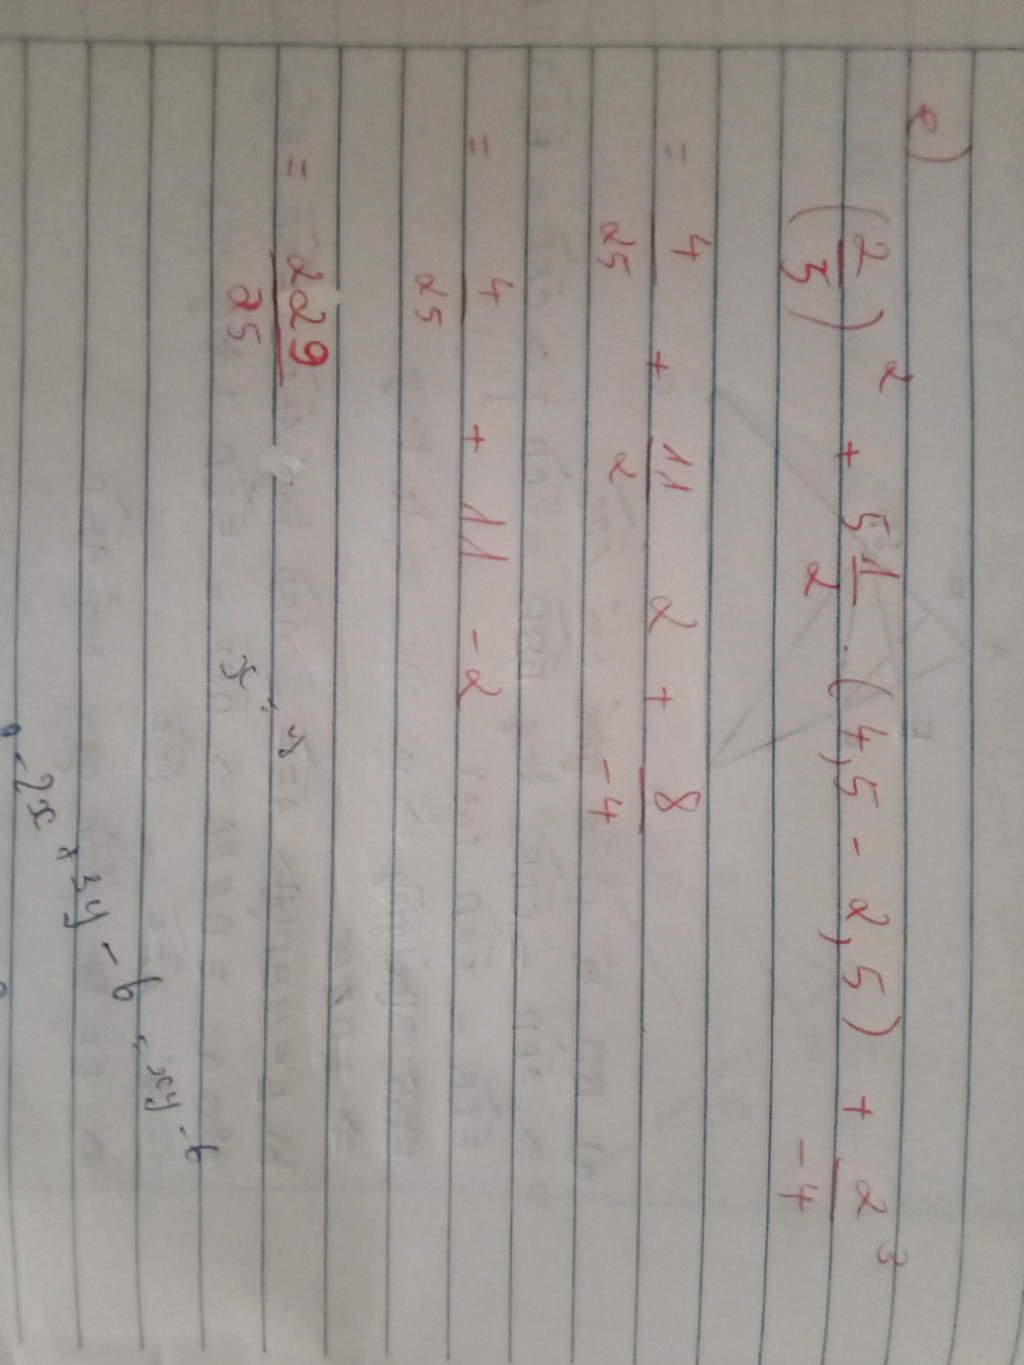 e)
(2/5)² + 5 1/2 . (4,5 - 2,5) + 2³/-4
= 4/25 + 11/2 2 + 8/-4
= 4/25 + 11 - 2
= 229/25
x
-2x + 3y - 6 = xy - 6